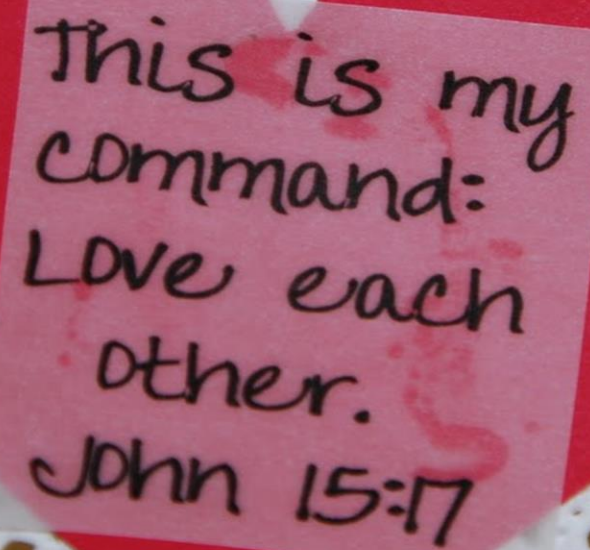 This is my
command:
Love each
other.
John 15:17